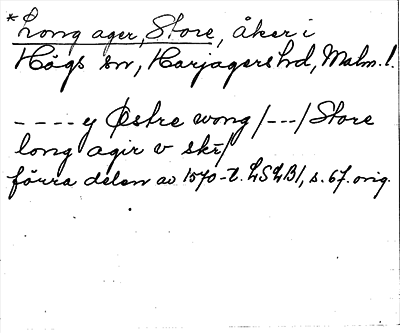 *Long ager, Store, åker i
Högs sn, Harjagers hd, Malm. l.
---- y Østre wong /---/ Store
long agir v skt/
förra delen av 1570-t. LSLB1, s. 67. orig.